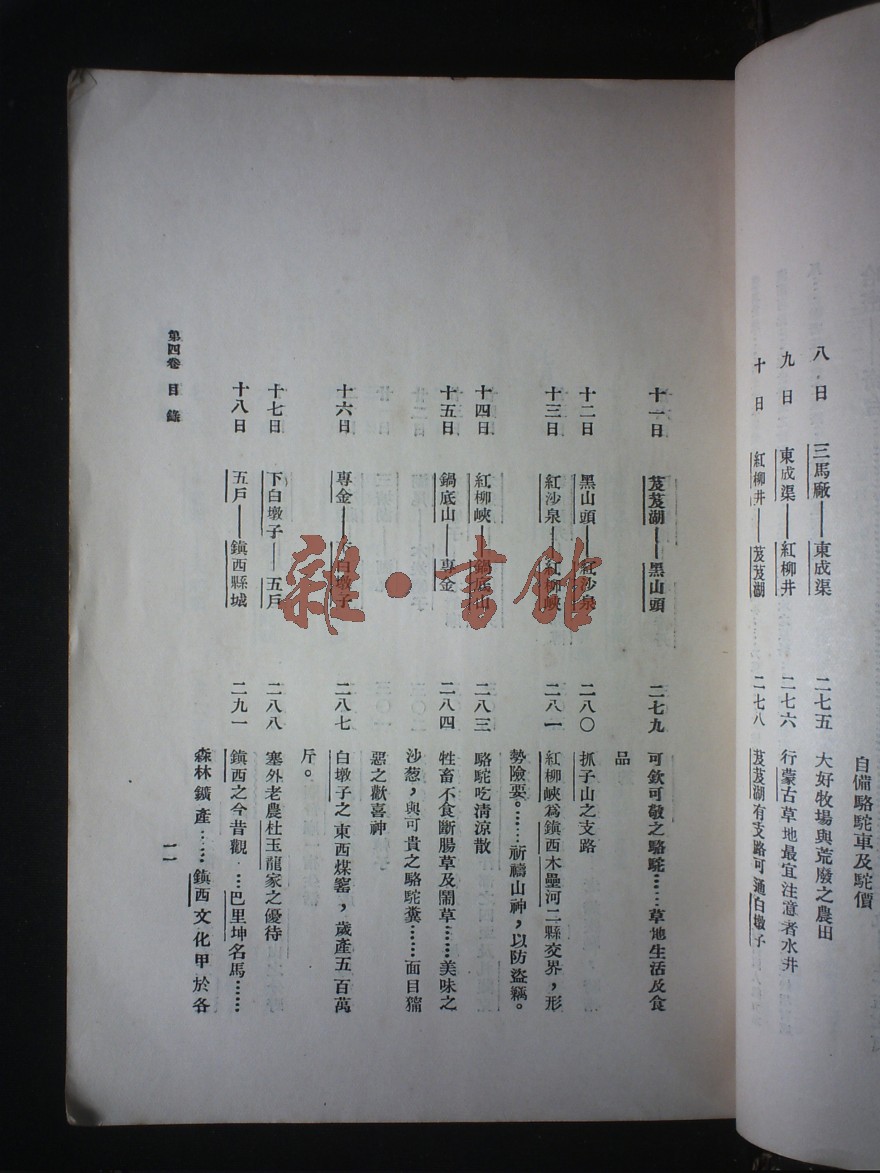 自備駱駝車及駝價
八日 三馬廠——東成渠 二七五 大好牧場與荒廢之農田
九日 東成渠——紅柳井 二七六 行蒙古草地最宜注意者水井
十日 紅柳井——芨芨湖 二七八 芨芨湖有支路可通白墩子
十一日 芨芨湖——黑山頭 二七九 可欽可敬之駱駝……草地生活及食
品
十二日 黑山頭——紅沙泉 二八〇 抓子山之支路
十三日 紅沙泉——紅柳峽 二八一 紅柳峽爲鎭西木壘河二縣交界，形
勢險要。……祈禱山神，以防盜竊。
十四日 紅柳峽——鍋底山 二八三 駱駝吃清涼散
十五日 鍋底山——專金 二八四 牲畜不食斷腸草及鬧草……美味之
沙葱，與可貴之駱駝糞……面目獰
惡之歡喜神
十六日 專金——下白墩子 二八七 白墩子之東西煤窰，歲產五百萬
斤。
十七日 下白墩子——五戶 二八八 塞外老農杜玉龍家之優待
十八日 五戶——鎭西縣城 二九一 鎭西之今昔觀…巴里坤名馬……
森林鑛產……鎭西文化甲於各
第四卷 目錄
一一
雜·書館